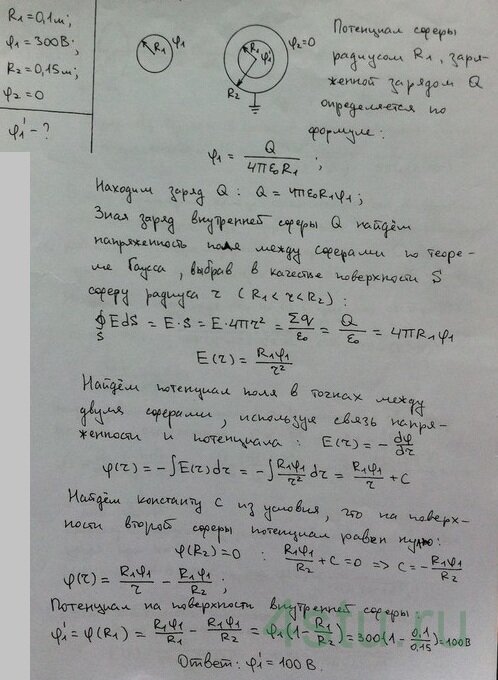 R₁=0,1м;
φ₁=300В;
R₂=0,15м;
φ₂=0
φ₁' - ?
R₁ φ₁
R₁ φ₁' φ₂=0
R₂
Потенциал сферы
радиусом R₁, заря-
женной зарядом Q
определяется по
формуле:
φ₁ = Q / 4πε₀R₁ ;
Находим заряд Q: Q = 4πε₀R₁φ₁;
Зная заряд внутренней сферы Q найдём
напряженность поля между сферами по теоре-
ме Гаусса, выбрав в качестве поверхности S
сферу радиуса r (R₁<r<R₂):
∮_S EdS = E·S = E·4πr² = Σq/ε₀ = Q/ε₀ = 4πR₁φ₁
E(r) = R₁φ₁/r²
Найдём потенциал поля в точках между
двумя сферами, используя связь напря-
женности и потенциала: E(r) = -dφ/dr
φ(r) = -∫E(r)dr = -∫R₁φ₁/r² dr = R₁φ₁/r + C
Найдём константу C из условия, что на поверх-
ности второй сферы потенциал равен нулю:
φ(R₂)=0 : R₁φ₁/R₂ + C = 0 => C = -R₁φ₁/R₂
φ(r) = R₁φ₁/r - R₁φ₁/R₂ ;
Потенциал на поверхности внутренней сферы
φ₁' = φ(R₁) = R₁φ₁/R₁ - R₁φ₁/R₂ = φ₁(1-R₁/R₂) = 300(1-0,1/0,15)=100В
Ответ: φ₁' = 100 В.
4stu.ru